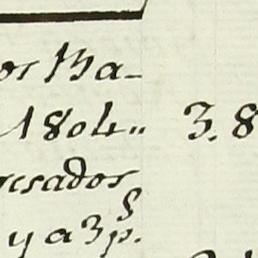 os Ba-
1804" 3.8
resados
y a 3 p.s